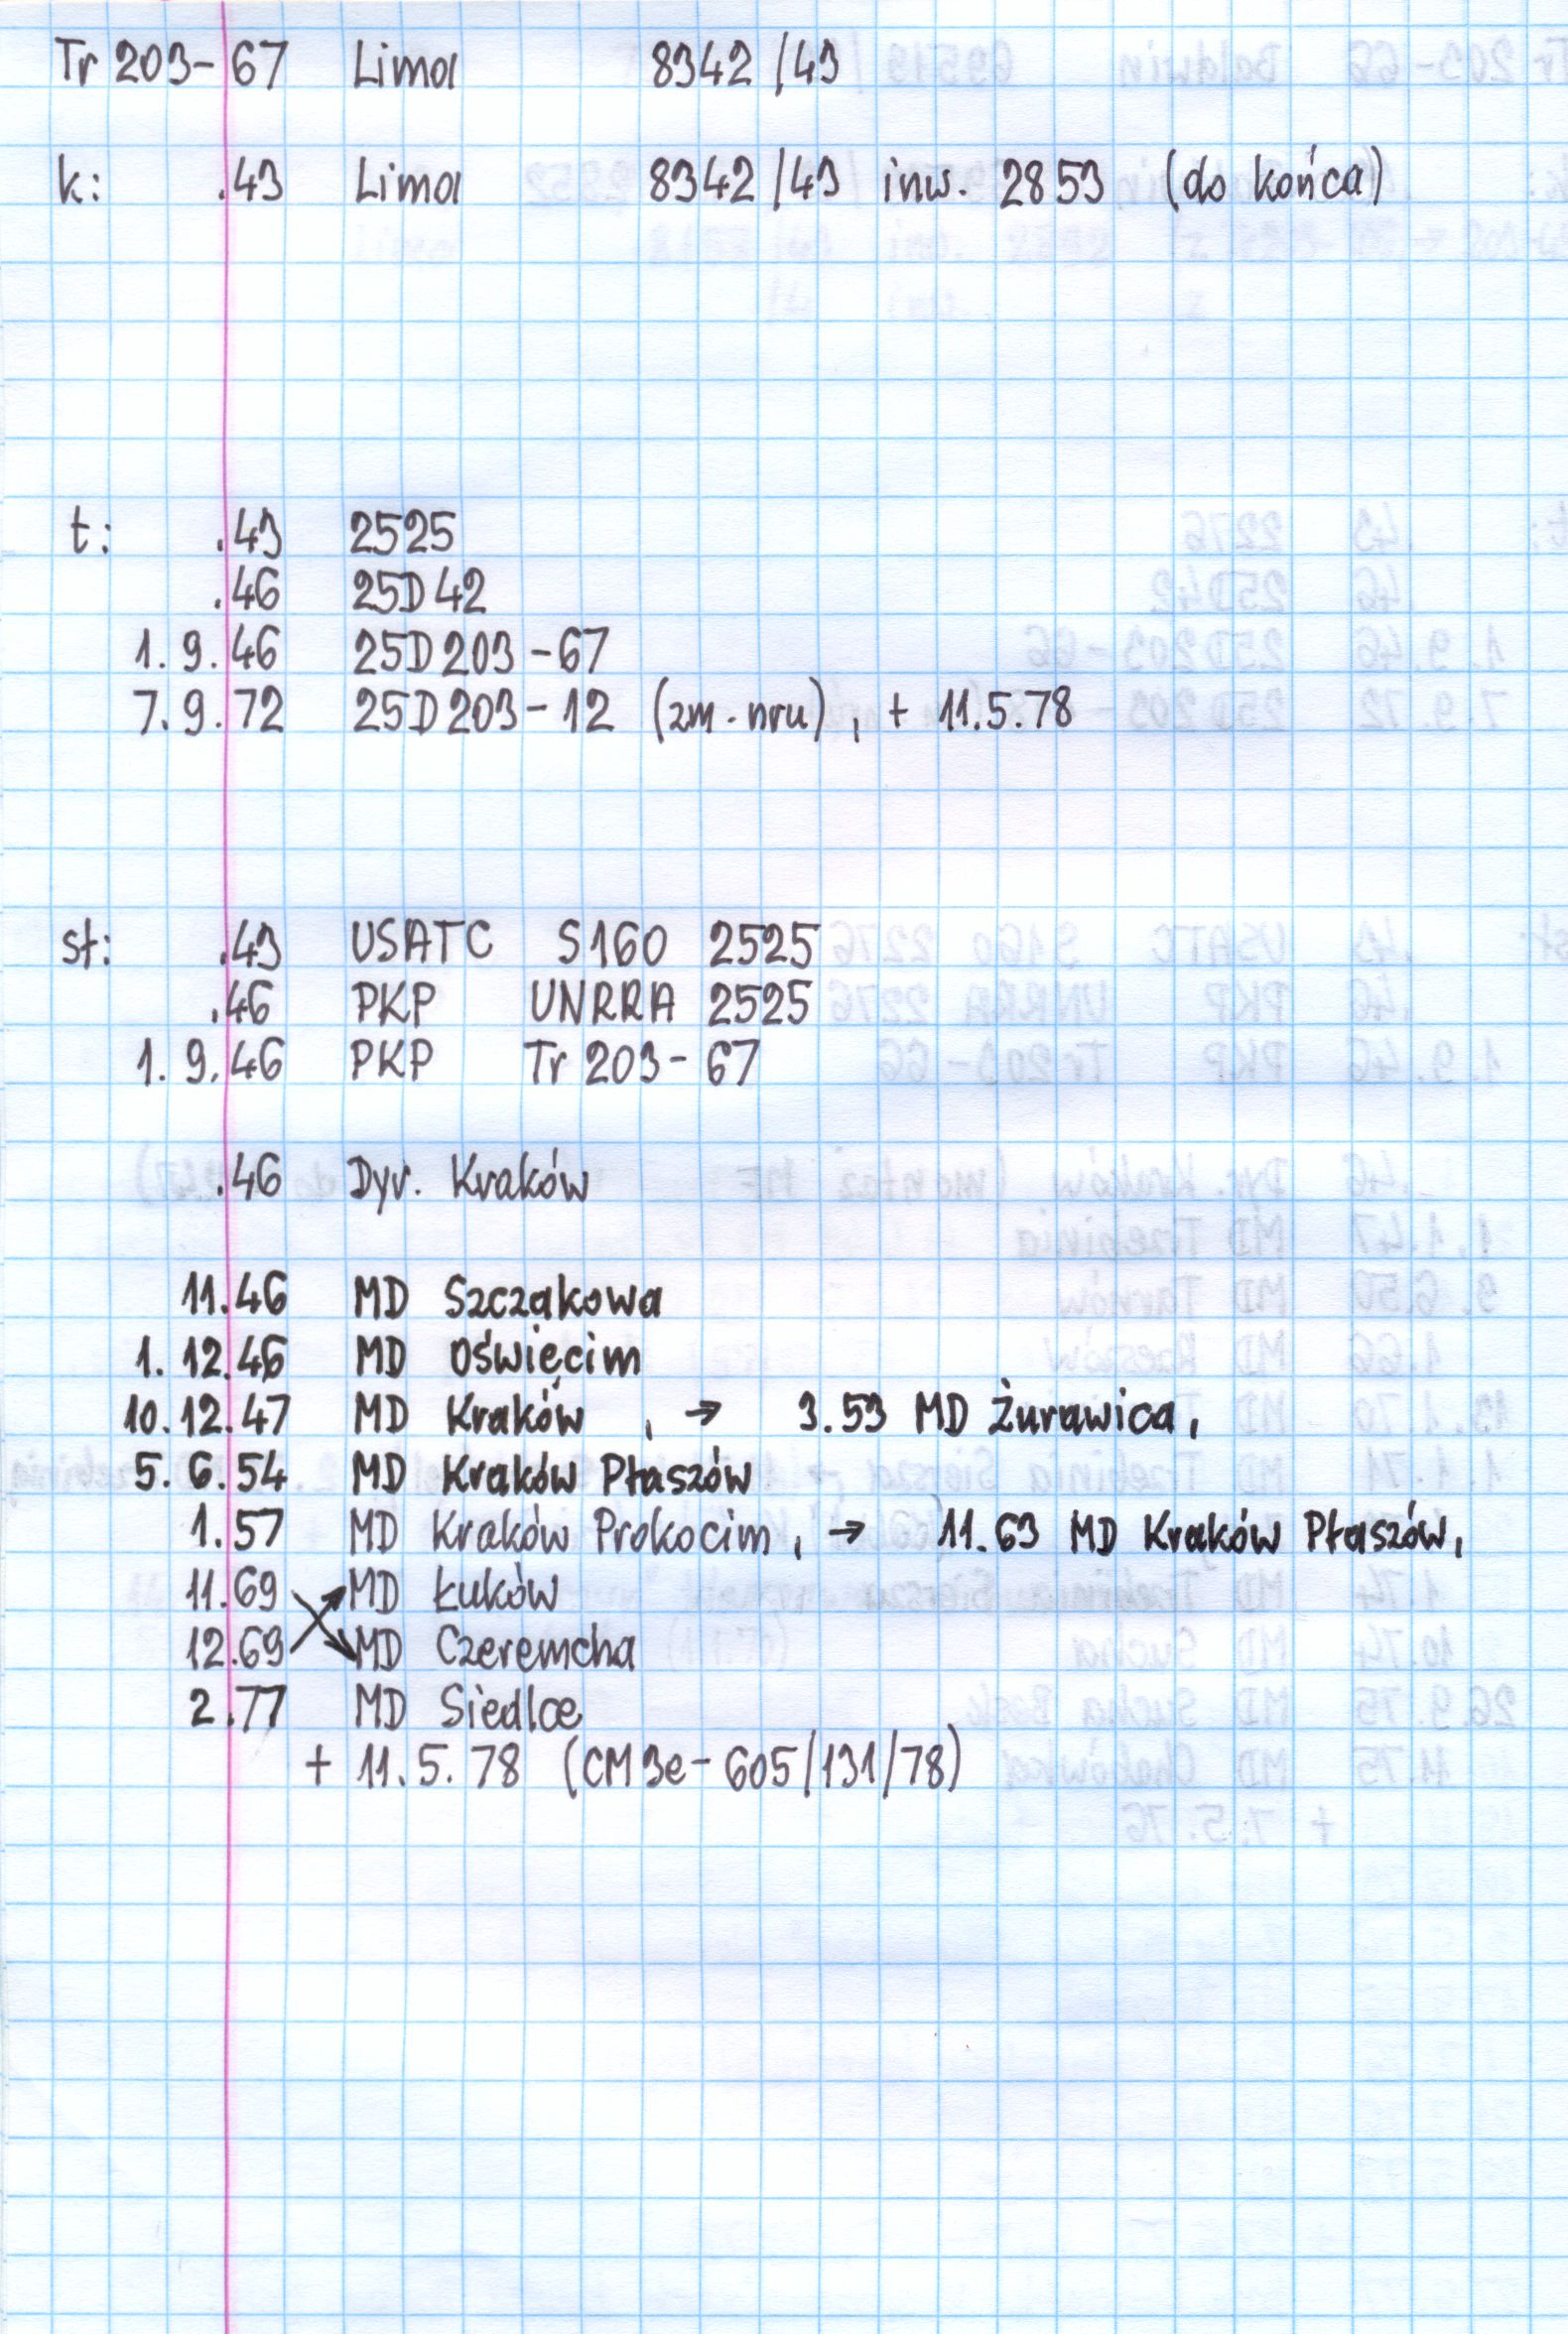 Tr 203-67 Lima 8342/43
k: .43 Lima 8342/43 inw. 2853 (do końca)
t: .43 2525
.46 25D42
1.9.46 25D203-67
7.9.72 25D203-12 (zm. nru), + 11.5.78
st: .43 USATC S160 2525
.46 PKP UNRRA 2525
1.9.46 PKP Tr 203-67
.46 Dyr. Kraków
11.46 MD Szczakowa
1.12.46 MD Oświęcim
10.12.47 MD Kraków , → 3.53 MD Żurawica,
5.6.54 MD Kraków Płaszów
1.57 MD Kraków Prokocim, → 11.63 MD Kraków Płaszów,
11.69 MD Łuków
12.69 MD Czeremcha
2.77 MD Siedlce
+ 11.5.78 (CM3e-605/131/78)